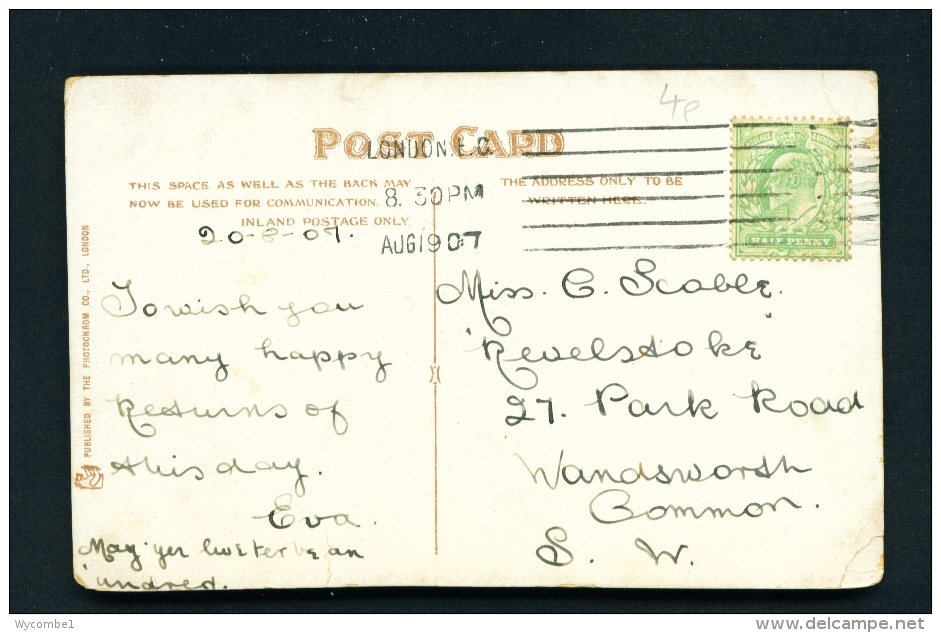 4p
POST CARD
LONDON. E.C.
8. 30PM
AUG 19 07
THIS SPACE AS WELL AS THE BACK MAY
NOW BE USED FOR COMMUNICATION.
INLAND POSTAGE ONLY.
THE ADDRESS ONLY TO BE
WRITTEN HERE.
HALF PENNY
20-8-07.
To wish you
many happy
Returns of
this day.
Eva.
May yer live ter be an
'undred.
Miss. C. Scable.
"Revelstoke"
27. Park Road
Wandsworth
Common.
S. W.
PUBLISHED BY THE PHOTOCHROM CO., LTD., LONDON
Wycombe1
www.delcampe.net